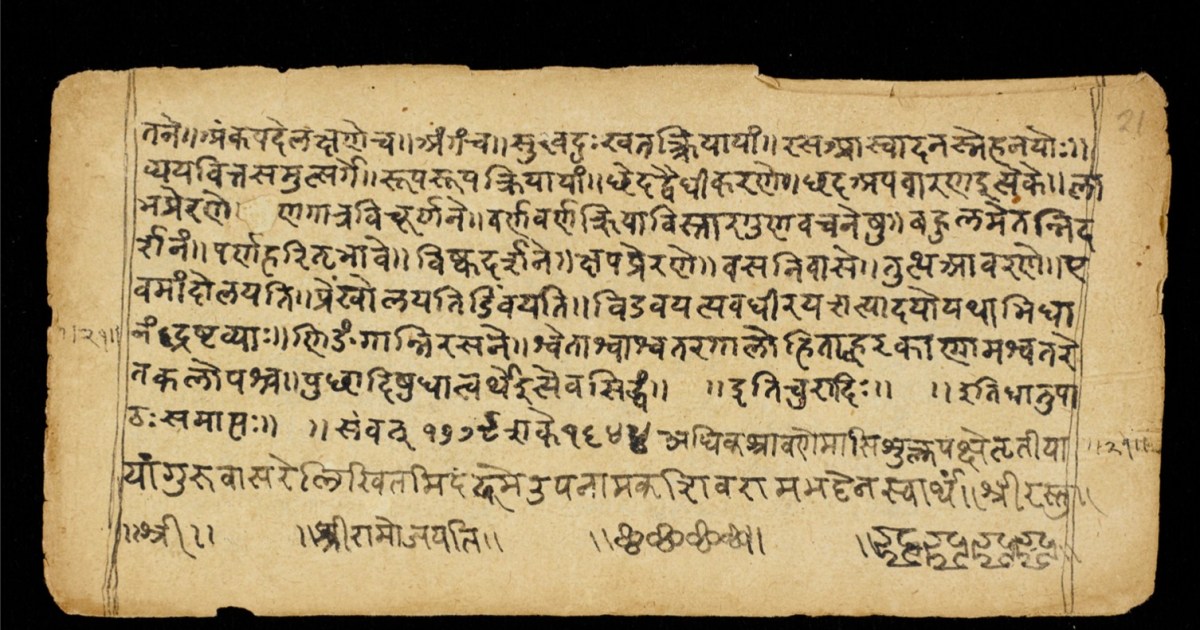 तने॥अंकपदे लक्षणे च॥अंगं च॥सुखदुःखतत्क्रियायां॥रसआस्वादनस्नेहनयोः॥
व्ययवित्तसमुत्सर्गे॥रूपरूपक्रियायां॥छेदद्वैधीकरणे॥छदअपवारणइत्येके॥ला
भप्रेरणे॥ व्रणगात्रविचूर्णने॥वर्णवर्णक्रियाविस्तारगुणवचनेषु॥बहुलमेतन्निद
र्शनं॥पर्णहरितभावे॥विष्कदर्शने॥क्षपप्रेरणे॥वसनिवासे॥तुत्थआवरणे॥ए
वमांदोलयति॥प्रेंखोलयति विडंबयति॥ अवधीरयत्यादयो यथाभिधा
नं द्रष्टव्याः॥णिङंगान्निरसने॥श्वेताश्वाश्वतरगालोडिताह्वरकाणामश्वतरे
तकलोपश्च॥पुच्छादिषु धात्वर्थइत्येव सिद्धं॥ ॥इति चुरादिः॥ ॥इति धातुपा
ठः समाप्तः॥ ॥संवत् १७७९ शके १६४४ अधिकश्रावणे मासि शुक्लपक्षे तृतीया
यां गुरुवासरे लिखितमिदं उपनामक रामभट्टेन स्वार्थं॥श्रीरस्तु॥
॥श्री॥ ॥श्रीरामो जयति॥
॥२१॥
॥२१॥
21